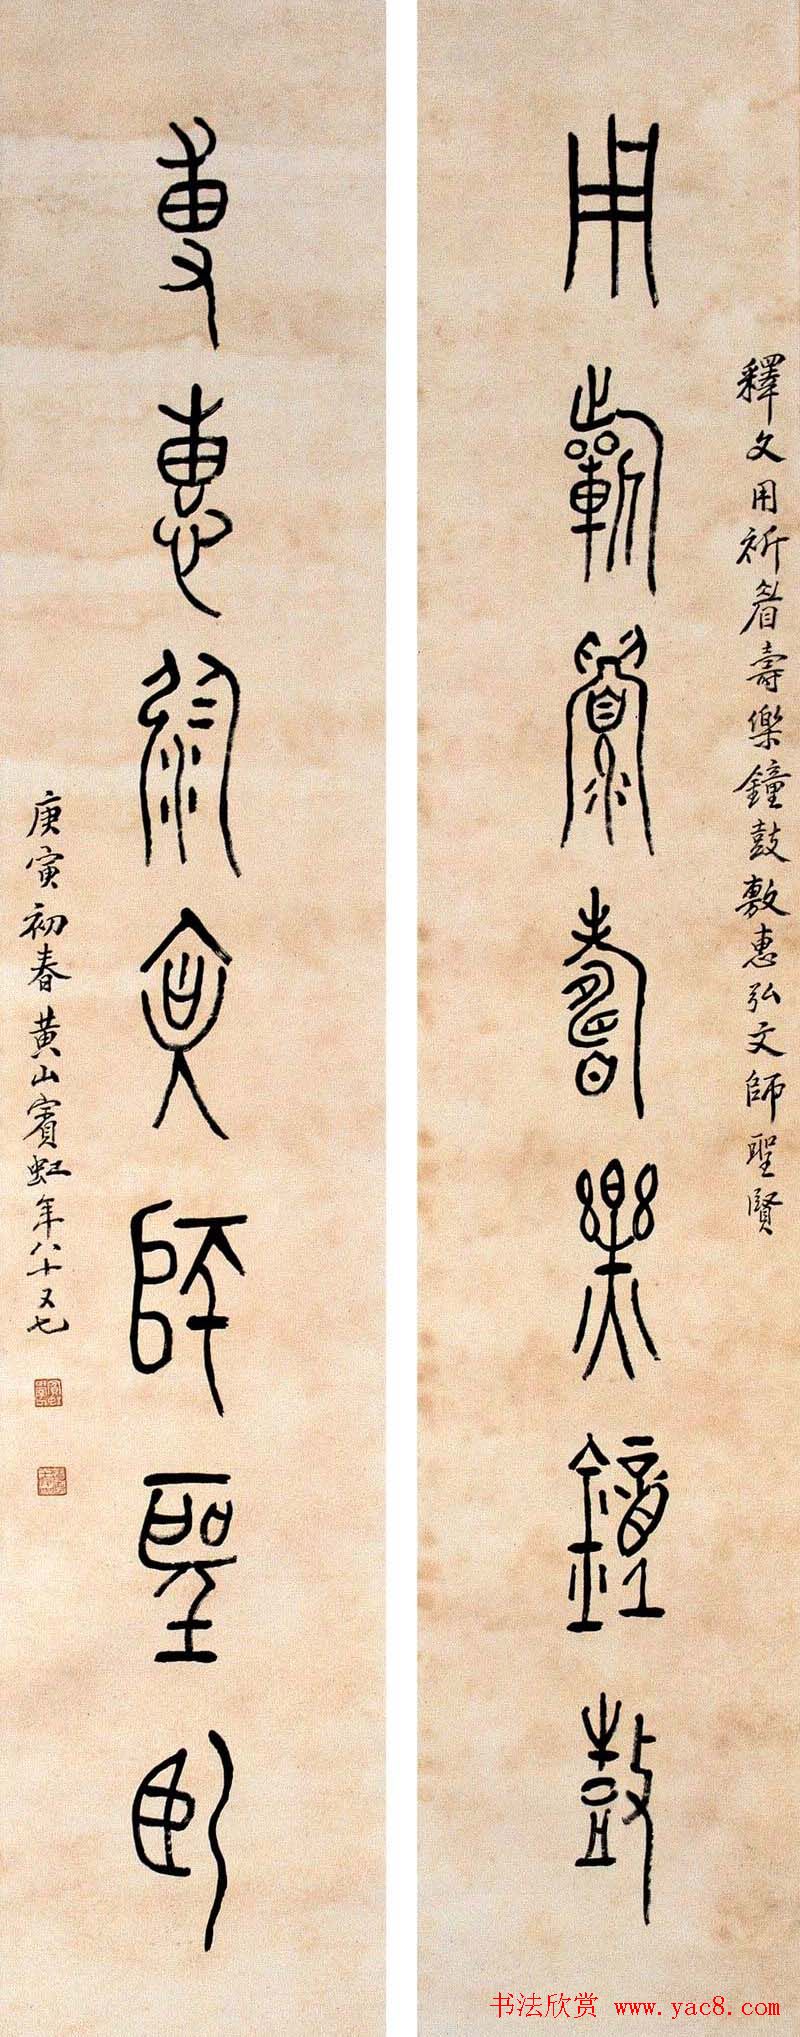 釋文用祈眉壽樂鐘鼓敷惠弘文師聖賢
用祈眉壽樂鐘鼓
敷惠弘文師聖賢
庚寅初春黃山賓虹年八十又七
书法欣赏 www.yac8.com